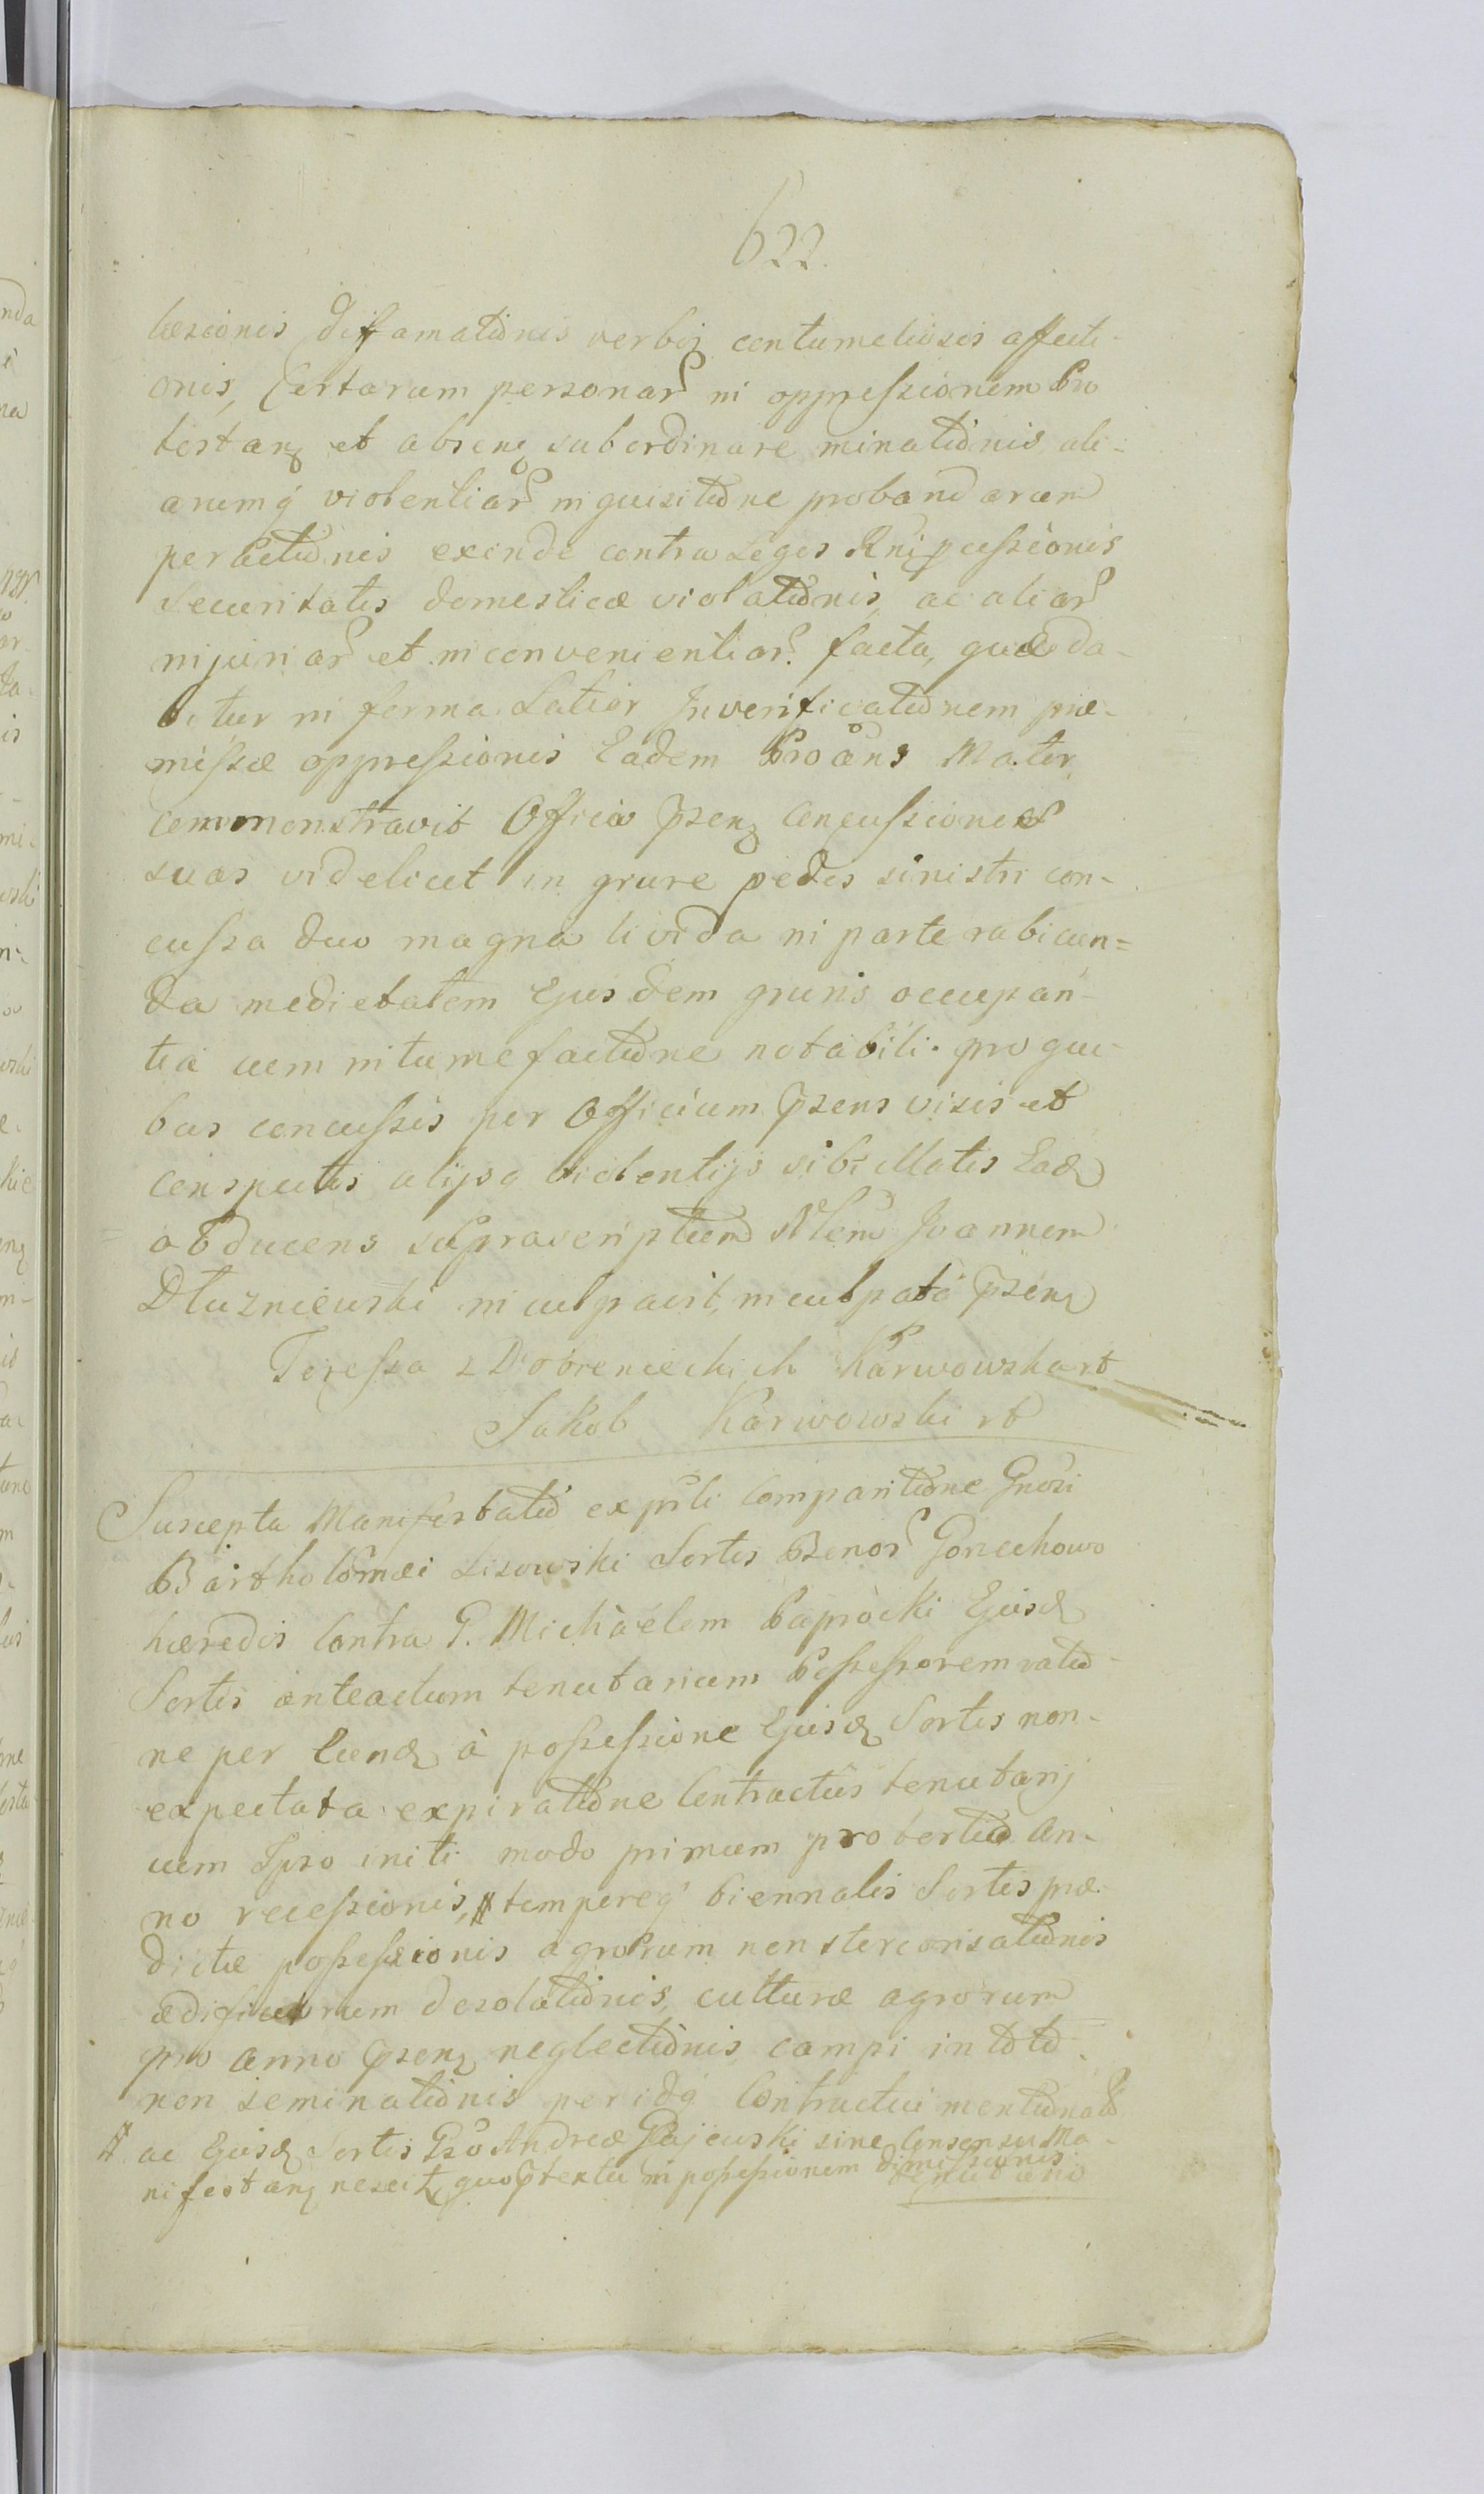 622.
læsionis diffamationis verbis contumeliosis affecti-
onis, Certarum personar in oppressionem Pro
testanq et absenq subordinare minationis ali-
arumq violentiar inquisitione probandarum
peractionis exinde contra Leges Rni percussionis
securitatis domesticæ violationis, ac aliar
injuriar et inconvenientiar. facta, quæ da-
bitur in forma Latior In verificationem præ-
missæ oppressionis Eadem Proans Mater,
commonstravit Officio Psenq Concussiones
suas videlicet in grure pedis sinistri con-
cussa duo magna livida in parte rubicun=
da medietatem Ejusdem gruris occupan-
tia cum intumefactione notabili. pro qui-
bus concussis per Officium Psens visis et
conspectis alijsq violentijs sibi illatis Ead
obducens suprascriptum Nlem Joannem
Dłuzniewski inculpavit, inculpatq Psenq
Teressa z Dobronieckich Karwowska rt
Jakob Karwowski rt
Suscepta Manifestatio ex prsli Comparitione Gnosi
Bartholomæi Lisowski Sortis Bsenor Gorzechowo
hæredis Contra G. Michaëlem Paprocki Ejusd
Sortis anteactum tenutarium Possessorem ratio-
ne per Eund à possessione Ejusd Sortis non-
expectata expiratione Contractûs tenutarij
cum Ipso initi modo primum pro tertio An-
no recessionis, # temporeq biennalis Sortis præ-
dictæ possessionis agrorum non stercorisationis
ædificiorum desolationis, culturæ agrorum
pro anno Psenq neglectionis campi in toto
non seminationis per idq Contractui mentionato
# ac Ejusd Sortis Gso Andreæ Gajewski sine Consensu Ma-
nifestanq nescit, quo Ptextu in possessionem dimissionis
tenutario